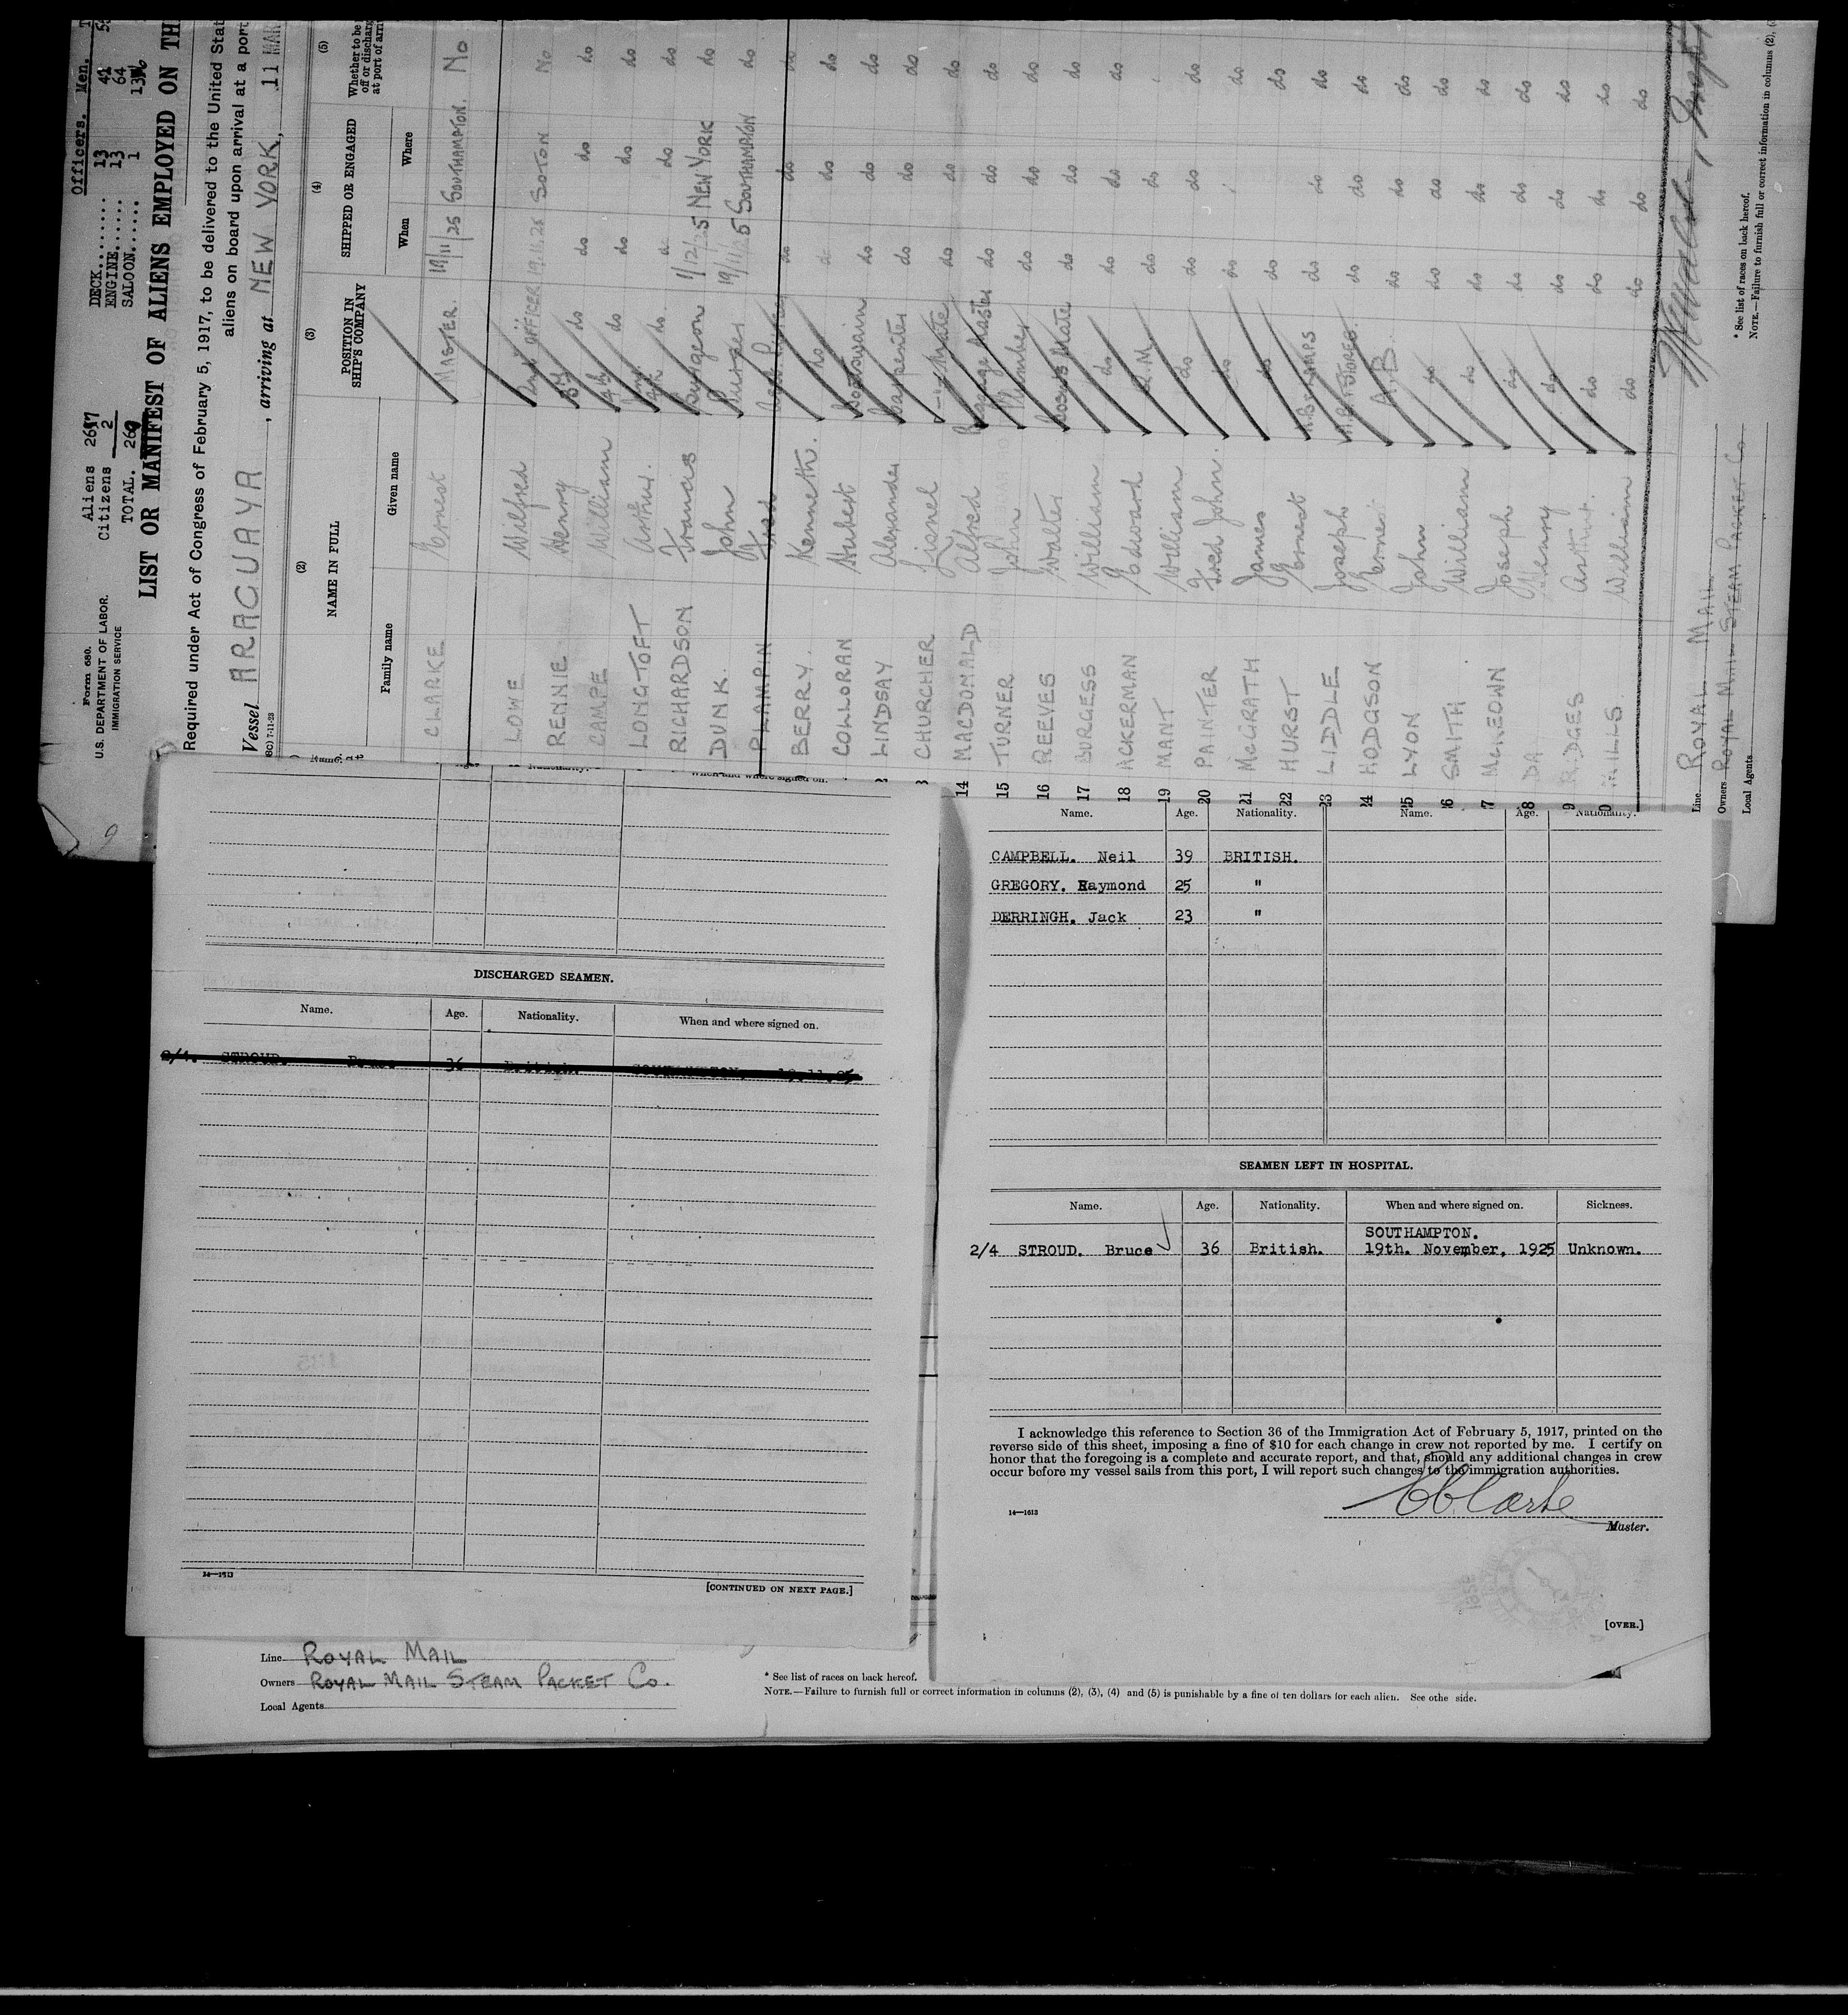 Form 680.
U.S. DEPARTMENT OF LABOR.
IMMIGRATION SERVICE
Aliens
Citizens 2
TOTAL.
Officers. Men.
DECK........ 13
ENGINE...... 13 64
SALOON...... 1
LIST OR MANIFEST OF ALIENS EMPLOYED ON TH
Required under Act of Congress of February 5, 1917, to be delivered to the United Stat
aliens on board upon arrival at a port
Vessel ARAGUAYA, arriving at NEW YORK, 11 MAR
(2) (3) (4) (5)
NAME IN FULL
POSITION IN SHIP'S COMPANY
SHIPPED OR ENGAGED
Whether to be
off or discharg
at port of arri
Family name Given name When Where
CLARKE Ernest MASTER. 19/11/25 SOUTHAMPTON. No
LOWE Wilfred OFFICER 19.11.25 SOTON No
RENNIE Henry do do do do
CAMPE William 4th do do do do
LONGTOFT Arthur. do do
RICHARDSON Francis Surgeon 1/12/25 NEW YORK do
DUNK. John Purser 19/11/25 SOUTHAMPTON do
PLAMPIN Fred do do do
BERRY. Kenneth. do do do
COLLORAN Hubert Boatswain do do do
LINDSAY Alexander Carpenter do do do
CHURCHER Lionel Mate do do
14 MACDONALD Alfred Baggage Master do do do
15 TURNER John Plumber do do do
16 REEVES Walter Bosuns Mate do do do
17 BURGESS William do do do do
18 ACKERMAN Edward Q.M. do do
19 MANT William do do do do
20 PAINTER Fred John. do do do
21 McGRATH James do do do
22 HURST Ernest LAMPS do do do
23 LIDDLE Joseph STORES. do do do
24 HODGSON A.B. do do do
25 LYON John do do do do
26 SMITH William do do do do
27 McKEOWN Joseph do do do do
28 Henry do do do do
29 RIDGES Arthur. do do do do
30 William do do do do
Line ROYAL MAIL
Owners ROYAL MAIL STEAM PACKET Co
Local Agents
* See list of races on back hereof.
NOTE.—Failure to furnish full or correct information in columns (2),
When and where signed on.
DISCHARGED SEAMEN.
Name. Age. Nationality. When and where signed on.
2/4. STROUD. Bruce 36 British. SOUTHAMPTON. 19.11.25
14—1613
[CONTINUED ON NEXT PAGE.]
Name. Age. Nationality. Name. Age. Nationality.
CAMPBELL. Neil 39 BRITISH.
GREGORY. Raymond 25 "
DERRINGH. Jack 23 "
SEAMEN LEFT IN HOSPITAL.
Name. Age. Nationality. When and where signed on. Sickness.
SOUTHAMPTON.
2/4 STROUD. Bruce 36 British. 19th. November, 1925 Unknown.
I acknowledge this reference to Section 36 of the Immigration Act of February 5, 1917, printed on the
reverse side of this sheet, imposing a fine of $10 for each change in crew not reported by me. I certify on
honor that the foregoing is a complete and accurate report, and that, should any additional changes in crew
occur before my vessel sails from this port, I will report such changes to the immigration authorities.
14—1613
Master.
[OVER.]
Line ROYAL MAIL
Owners ROYAL MAIL STEAM PACKET Co.
Local Agents
* See list of races on back hereof.
NOTE.—Failure to furnish full or correct information in columns (2), (3), (4) and (5) is punishable by a fine of ten dollars for each alien. See othe side.